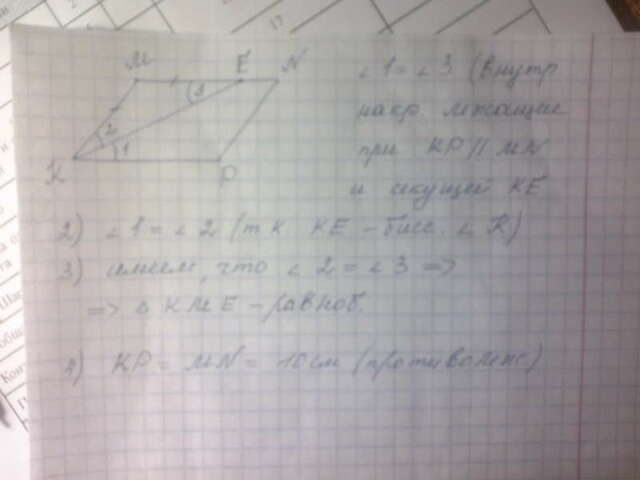 M E N
3
2
1
K P
∠1 = ∠3 (внутр
накр. лежащие
при KP || MN
и секущей KE
2) ∠1 = ∠2 (т.к. KE – бисс. ∠K)
3) имеем, что ∠2 = ∠3 =>
=> Δ KME – равноб.
4) KP = MN = 10 см (противолеж)